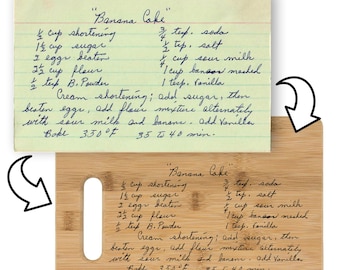 "Banana Cake"
½ cup shortening ¾ tsp. soda
1½ cup sugar ½ tsp. salt
2 eggs beaten ¼ cup sour milk
2½ cup flour 1 cup banana mashed
½ tsp B. Powder 1 tsp. Vanilla
Cream shortening; add sugar, then
beaten eggs, add flour mixture alternately
with sour milk and banana. add Vanilla
Bake 350°f 35 to 40 min.
"Banana Cake"
½ cup shortening ¾ tsp. soda
1½ cup sugar ½ tsp. salt
2 eggs beaten ¼ cup sour milk
2½ cup flour 1 cup banana mashed
½ tsp B. Powder 1 tsp. Vanilla
Cream shortening; add sugar, then
beaten eggs, add flour mixture alternately
with sour milk and banana. add Vanilla
Bake 350°f 35 to 40 min.